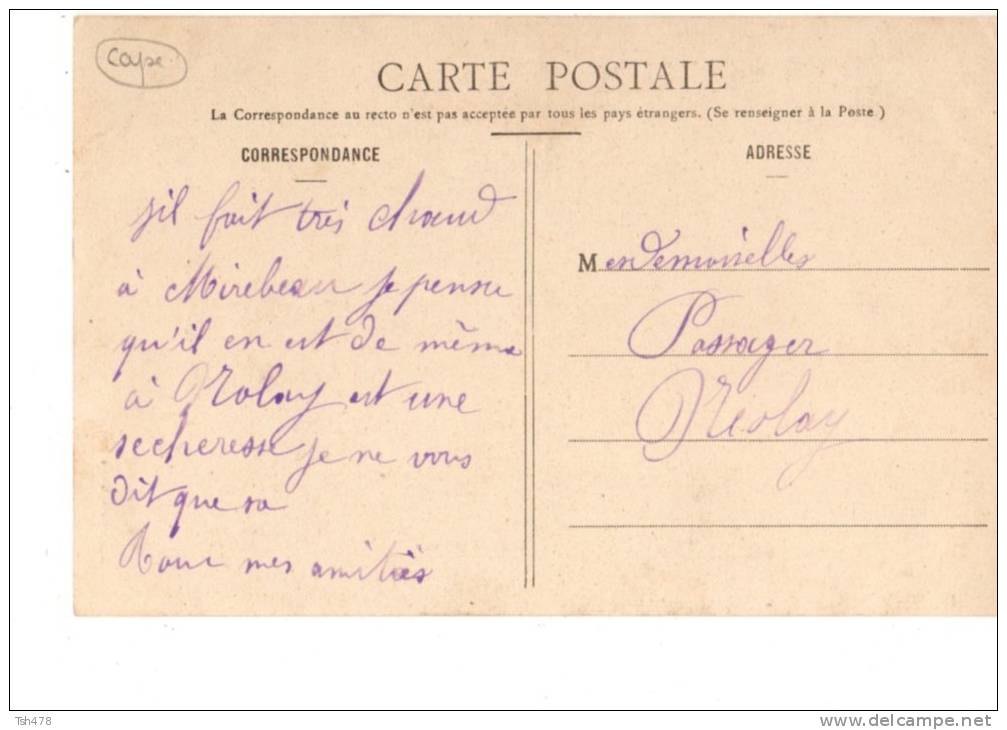 Cape
CARTE POSTALE
La Correspondance au recto n'est pas acceptée par tous les pays étrangers. (Se renseigner à la Poste.)
CORRESPONDANCE
ADRESSE
s'il fait très chaud
à Mirebeau je pense
qu'il en est de même
à Nolay est une
secheresse je ne vous
dit que sa
Tour mes amitiés
Mesdemoiselles
Passager
Neolay
Tsh478
www.delcampe.net